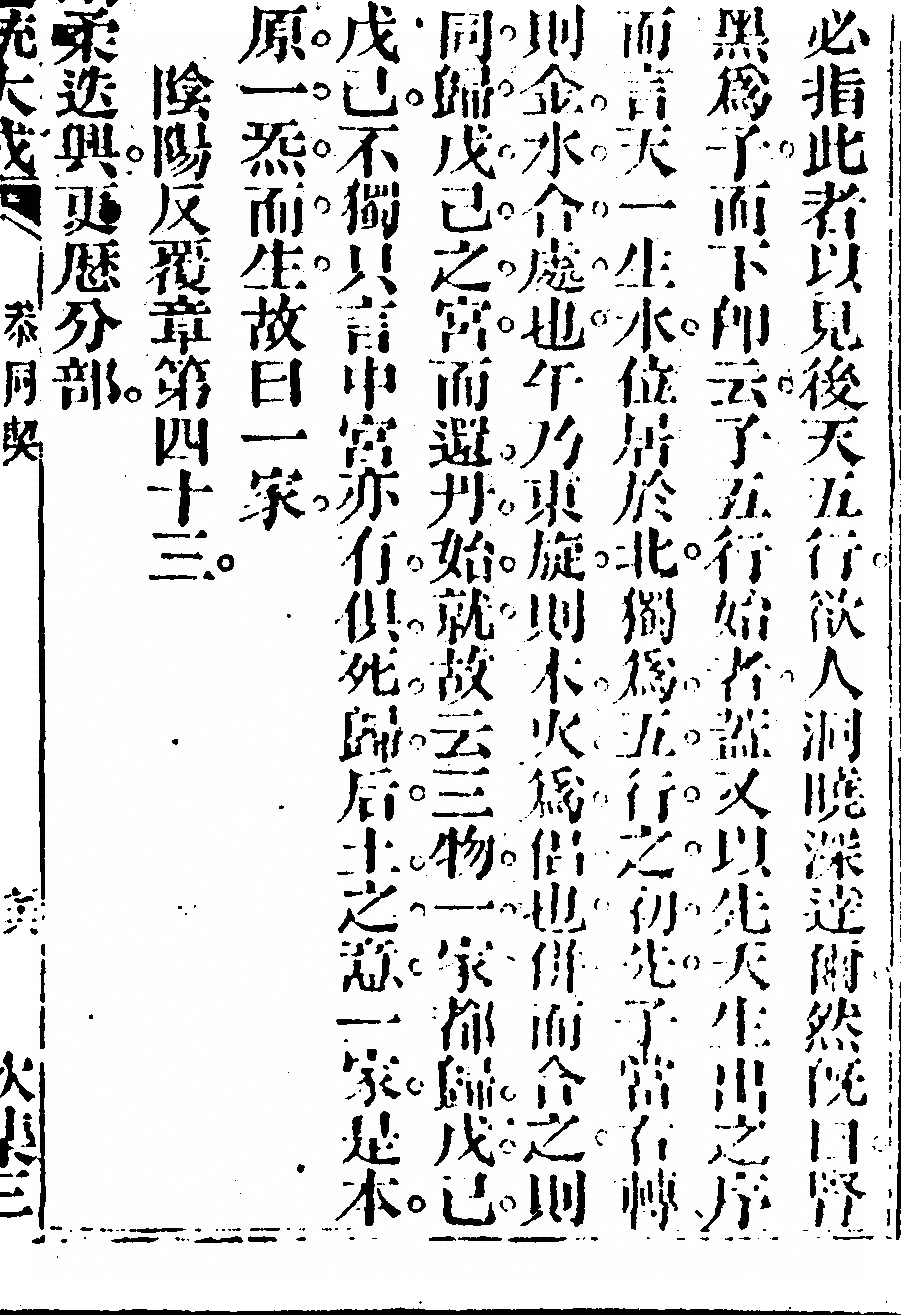 必指此者以見後天五行欲人洞曉深達爾然旣曰腎
黑爲子而下卽云子五行始者蓋又以先天生出之序
而言天一生水位居於北獨爲五行之初先子當右轉
則金水合處也午乃東旋則木火爲侶也併而合之則
同歸戊己之宮而還丹始就故云三物一家都歸戊己
戊己不獨只言中宮亦有俱死歸后土之意一家是本
原一炁而生故曰一家
陰陽反覆章第四十三
柔迭興更歷分部
參同契